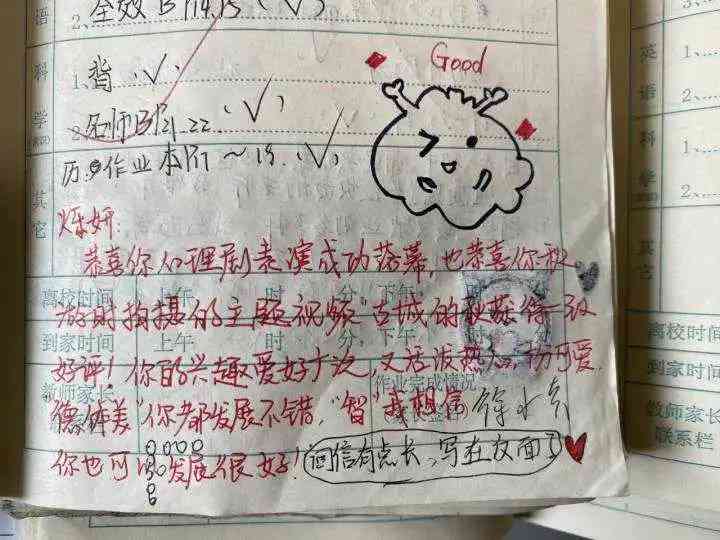 语
2、全效 P14.15 (√)
科
1、背 (√)
学
2、名师 P21.22 (√)
Good
历:作业本P17~19 (√)
其它
烁妍:
恭喜你心理剧表演成功落幕,也恭喜你秋
游时拍摄的主题视频"古城的秋"获得一致
好评!你的兴趣爱好广次,又活泼热心、可爱
"德体美"你都发展不错,"智"我想信
你也可以发展很好!
回信有点长,写在反面了
离校时间 上午 时 分,下午 时 分
到家时间 上午 时 分,下午 时 分
教师家长
作业完成情况
英语
1、
2、
科学
1、
2、
其它
离校时间
到家时间
教师家长
联系栏